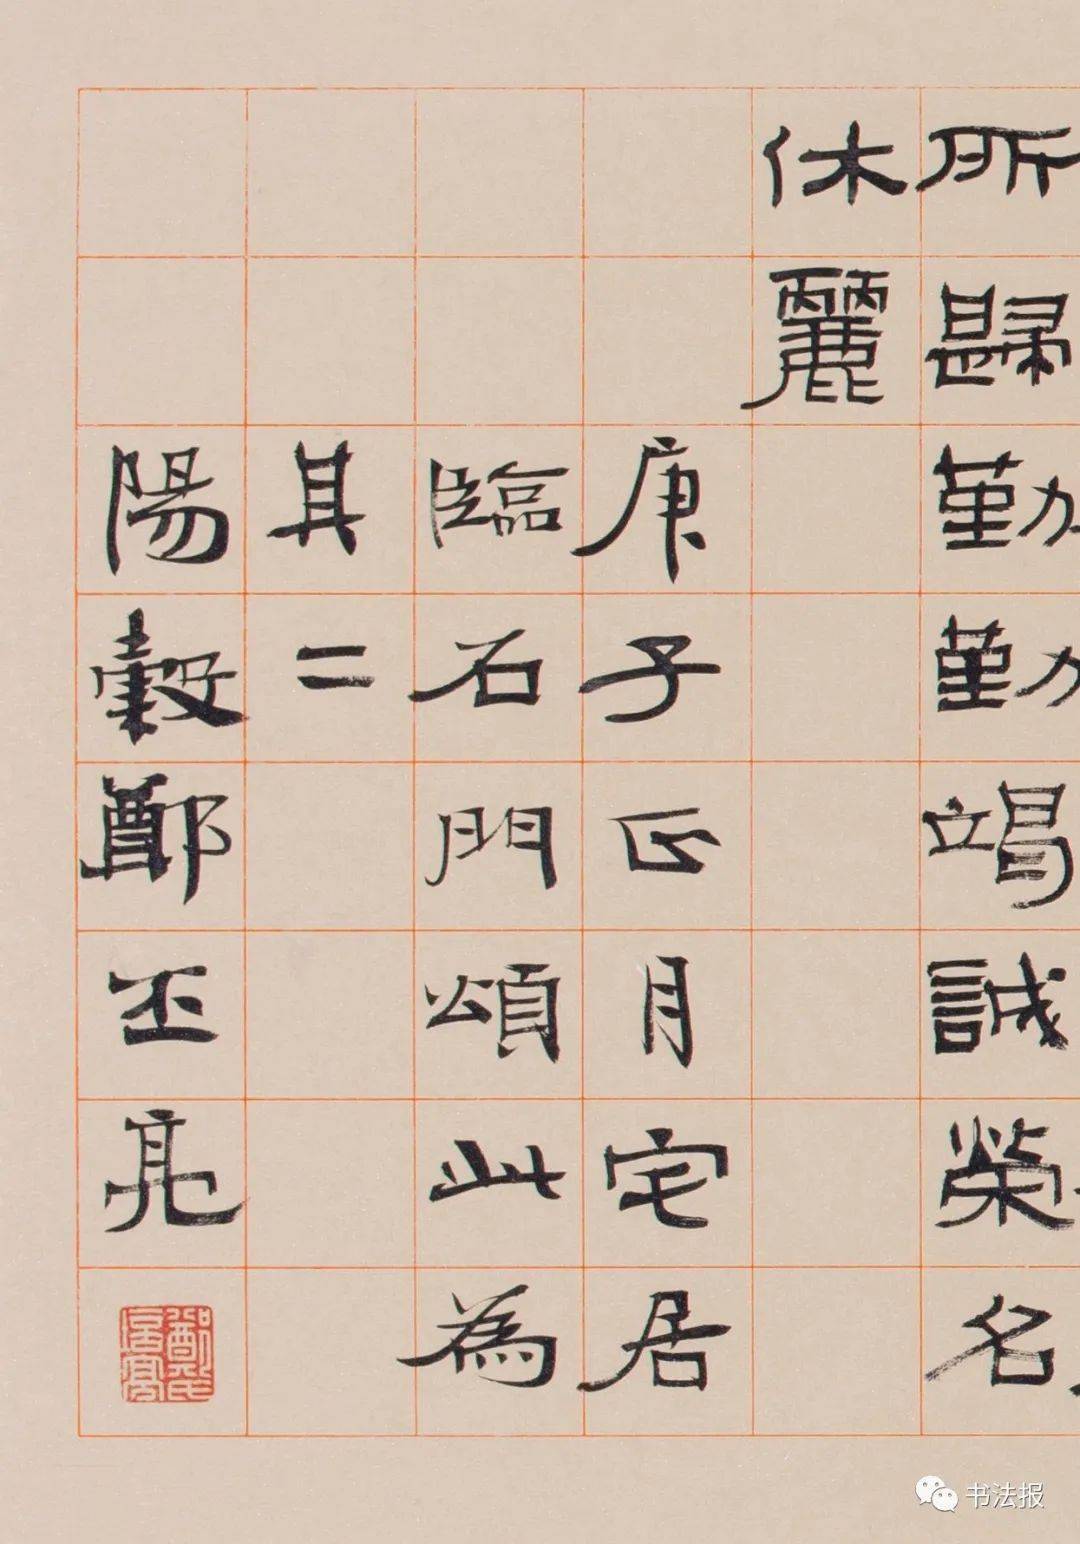 所歸勤勤竭誠榮名
休麗
庚子正月宅居
臨石門頌此為
其二
陽穀鄭丕亮
鄭氏
书法报